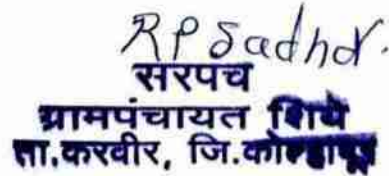 RPSadhd.
सरपंच
ग्रामपंचायत शिये
ता.करवीर, जि.कोल्हापूर